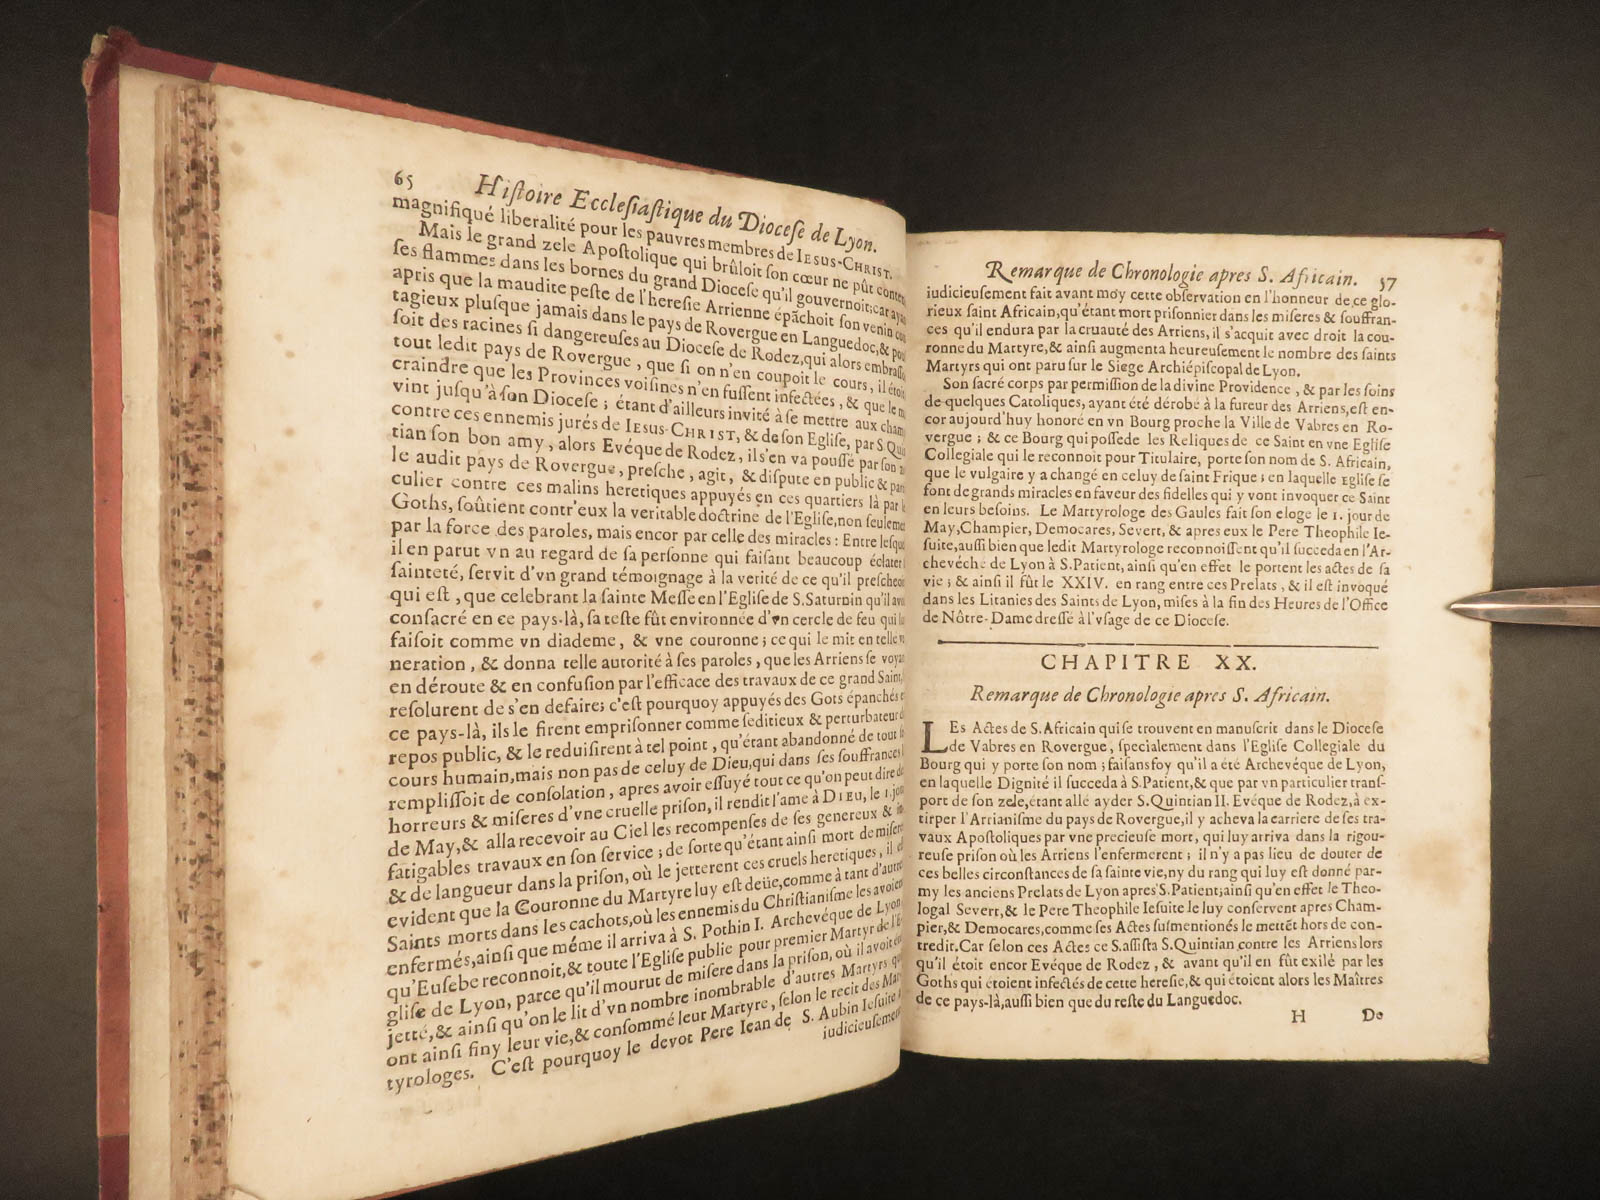 65 Hiſtoire Eccleſiaſtique du Dioceſe de Lyon.
magnifiqué liberalité pour les pauvres membres de IESUS-CHRIST.
Mais le grand zele Apoſtolique qui brûloit ſon cœur ne pût
ſes flammes dans les bornes du grand Dioceſe qu'il gouvernoit; car
apris que la maudite peſte de l'hereſie Arrienne épãchoit ſon venin
tagieux pluſque jamais dans le pays de Rovergue en Languedoc, &
ſoit des racines ſi dangereuſes au Dioceſe de Rodez, qui alors
tout ledit pays de Rovergue, que ſi on n'en coupoit le cours, il
craindre que les Provinces voiſines n'en fuſſent infectées, & que le
vint juſqu'à ſon Dioceſe; étant d'ailleurs invité à ſe mettre aux
contre ces ennemis jurés de IESUS-CHRIST, & de ſon Egliſe, par S.
tian ſon bon amy, alors Evéque de Rodez, il s'en va pouſſé par ſon
le audit pays de Rovergue, preſche, agit, & diſpute en public &
culier contre ces malins heretiques appuyés en ces quartiers là par
Goths, ſoûtient contr'eux la veritable doctrine de l'Egliſe, non
par la force des paroles, mais encor par celle des miracles: Entre
il en parut vn au regard de ſa perſonne qui faiſant beaucoup
ſainteté, ſervit d'vn grand témoignage à la verité de ce qu'il
qui eſt, que celebrant la ſainte Meſſe en l'Egliſe de S. Saturnin qu'il
conſacré en ce pays-là, ſa teſte fût environnée d'vn cercle de feu qui
faiſoit comme vn diademe, & vne couronne; ce qui le mit en telle
neration, & donna telle autorité à ſes paroles, que les Arriens ſe
en déroute & en confuſion par l'efficace des travaux de ce grand Saint,
reſolurent de s'en defaire; c'eſt pourquoy appuyés des Gots épanchés
ce pays-là, ils le firent empriſonner comme ſeditieux & perturbateur
repos public, & le reduiſirent à tel point, qu'étant abandonné de tout
cours humain, mais non pas de celuy de Dieu, qui dans ſes ſouffrances
rempliſſoit de conſolation, apres avoir eſſuyé tout ce qu'on peut dire
horreurs & miſeres d'vne cruelle priſon, il rendit l'ame à DIEU, le 1.
de May, & alla recevoir au Ciel les recompenſes de ſes genereux &
fatigables travaux en ſon ſervice; de ſorte qu'étant ainſi mort de
& de langueur dans la priſon, où le jetterent ces cruels heretiques, il
evident que la Couronne du Martyre luy eſt deüe, comme à tant d'autres
Saints morts dans les cachots, où les ennemis du Chriſtianiſme les
enfermés, ainſi que méme il arriva à S. Pothin I. Archevéque de Lyon
qu'Euſebe reconnoit, & toute l'Egliſe publie pour premier Martyr de
gliſe de Lyon, parce qu'il mourut de miſere dans la priſon, où il avoit
jetté, & ainſi qu'on le lit d'vn nombre inombrable d'autres Martyrs
ont ainſi finy leur vie, & conſommé leur Martyre, ſelon le recit des
tyrologes. C'eſt pourquoy le devot Pere Iean de S. Aubin Ieſuite
Remarque de Chronologie apres S. Africain. 57
iudicieuſement fait avant moy cette obſervation en l'honneur de ce glo-
rieux ſaint Africain, qu'étant mort priſonnier dans les miſeres & ſouffran-
ces qu'il endura par la cruauté des Arriens, il s'acquit avec droit la cou-
ronne du Martyre, & ainſi augmenta heureuſement le nombre des ſaints
Martyrs qui ont paru ſur le Siege Archiépiſcopal de Lyon.
Son ſacré corps par permiſſion de la divine Providence, & par les ſoins
de quelques Catoliques, ayant été dérobé à la fureur des Arriens, eſt en-
cor aujourd'huy honoré en vn Bourg proche la Ville de Vabres en Ro-
vergue; & ce Bourg qui poſſede les Reliques de ce Saint en vne Egliſe
Collegiale qui le reconnoit pour Titulaire, porte ſon nom de S. Africain,
que le vulgaire y a changé en celuy de ſaint Frique; en laquelle Egliſe ſe
font de grands miracles en faveur des fidelles qui y vont invoquer ce Saint
en leurs beſoins. Le Martyrologe des Gaules fait ſon eloge le 1. jour de
May, Champier, Democares, Severt, & apres eux le Pere Theophile Ie-
ſuite, auſſi bien que ledit Martyrologe reconnoiſſent qu'il ſucceda en l'Ar-
chevéché de Lyon à S. Patient, ainſi qu'en effet le portent les actes de ſa
vie; & ainſi il fût le XXIV. en rang entre ces Prelats, & il eſt invoqué
dans les Litanies des Saints de Lyon, miſes à la fin des Heures de l'Office
de Nôtre-Dame dreſſé à l'vſage de ce Dioceſe.
CHAPITRE XX.
Remarque de Chronologie apres S. Africain.
LES Actes de S. Africain qui ſe trouvent en manuſcrit dans le Dioceſe
de Vabres en Rovergue, ſpecialement dans l'Egliſe Collegiale du
Bourg qui y porte ſon nom; faiſans foy qu'il a été Archevéque de Lyon,
en laquelle Dignité il ſucceda à S. Patient, & que par vn particulier tranſ-
port de ſon zele, étant allé ayder S. Quintian II. Evéque de Rodez, à ex-
tirper l'Arrianiſme du pays de Rovergue, il y acheva la carriere de ſes tra-
vaux Apoſtoliques par vne precieuſe mort, qui luy arriva dans la rigou-
reuſe priſon où les Arriens l'enfermerent; il n'y a pas lieu de douter de
ces belles circonſtances de ſa ſainte vie, ny du rang qui luy eſt donné par-
my les anciens Prelats de Lyon apres S. Patient; ainſi qu'en effet le Theo-
logal Severt, & le Pere Theophile Ieſuite le luy conſervent apres Cham-
pier, & Democares, comme ſes Actes ſuſmentionés le mettẽt hors de con-
tredit. Car ſelon ces Actes ce S. aſſiſta S. Quintian contre les Arriens lors
qu'il étoit encor Evéque de Rodez, & avant qu'il en fût exilé par les
Goths qui étoient infectés de cette hereſie, & qui étoient alors les Maîtres
de ce pays-là, auſſi bien que du reſte du Languedoc.
H De